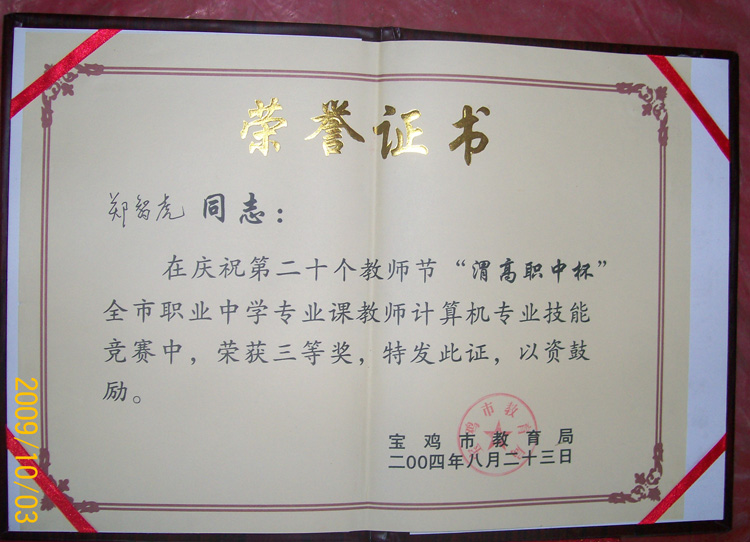 荣誉证书
郑智虎 同志：
在庆祝第二十个教师节“渭高职中杯”
全市职业中学专业课教师计算机专业技能
竞赛中，荣获三等奖，特发此证，以资鼓
励。
宝鸡市教育局
二〇〇四年八月二十三日
宝鸡市教育局
2009/10/03